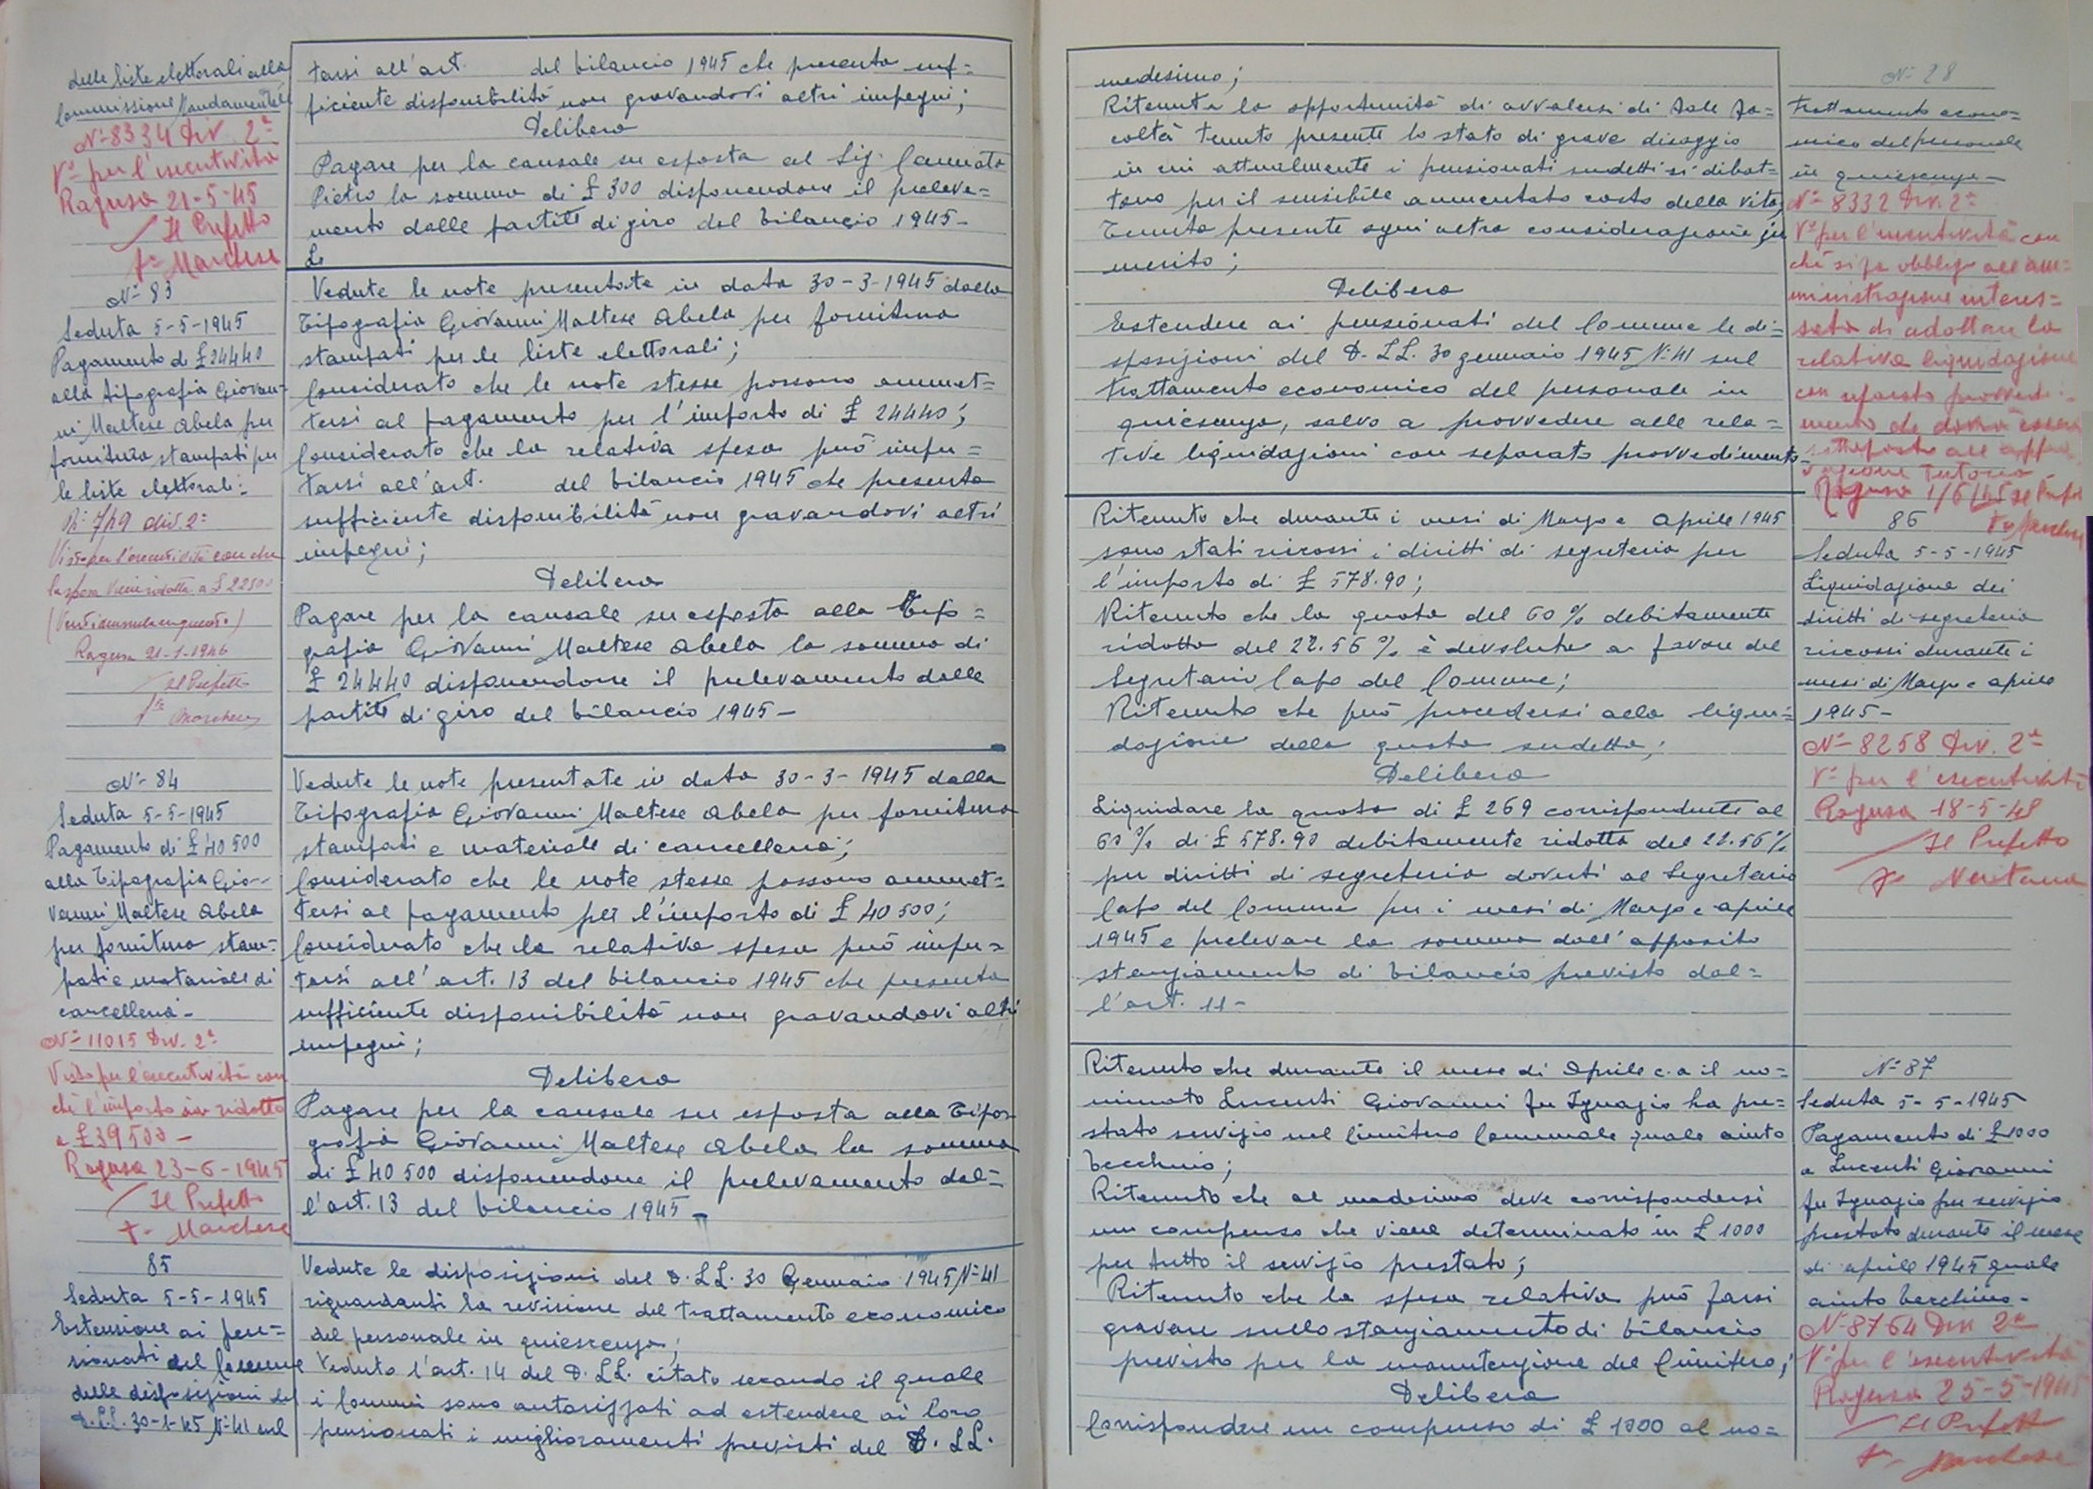 delle liste elettorali alla
Commissione Mandamentale
N° 8334 Div. 2ª
V° per l'esecutività
Ragusa 21-5-45
Il Prefetto
f° Marchese
tarsi all'art. del bilancio 1945 che presenta suf=
ficiente disponibilità non gravandovi altri impegni;
Delibera
Pagare per la causale su esposta al Sig.
Pietro la somma di £ 300 disponendone il preleva=
mento dalle partite di giro del bilancio 1945-
Le
N° 83
Seduta 5-5-1945
Pagamento di £ 24440
alla tipografia Giovan=
ni Maltese Abela per
fornitura stampati per
le liste elettorali:
N° 719 div. 2ª
Visto per l'esecutività con che
la spesa viene ridotta a £ 22500
(Ventiduemilacinquecento)
Ragusa 21-1-1946
Il Prefetto
f° Marchese
Vedute le note presentate in data 30-3-1945 dalla
Tipografia Giovanni Maltese Abela per fornitura
stampati per le liste elettorali;
Considerato che le note stesse possono ammet=
tersi al pagamento per l'importo di £ 24440;
Considerato che la relativa spesa può impu=
tarsi all'art. del bilancio 1945 che presenta
sufficiente disponibilità non gravandovi altri
impegni;
Delibera
Pagare per la causale su esposta alla Tipo=
grafia Giovanni Maltese Abela la somma di
£ 24440 disponendone il prelevamento dalle
partite di giro del bilancio 1945-
N° 84
Seduta 5-5-1945
Pagamento di £ 40500
alla Tipografia Gio-
vanni Maltese Abela
per fornitura stam=
pati e materiale di
cancelleria-
N° 11015 Div. 2ª
Visto per l'esecutività con
che l'importo sia ridotto
a £ 39500-
Ragusa 23-6-1945
Il Prefetto
f° Marchese
Vedute le note presentate in data 30-3-1945 dalla
Tipografia Giovanni Maltese Abela per fornitura
stampati e materiale di cancelleria;
Considerato che le note stesse possono ammet=
tersi al pagamento per l'importo di £ 40500;
Considerato che la relativa spesa può impu=
tarsi all'art. 13 del bilancio 1945 che presenta
sufficiente disponibilità non gravandovi altri
impegni;
Delibera
Pagare per la causale su esposta alla Tipo=
grafia Giovanni Maltese Abela la somma
di £ 40500 disponendone il prelevamento dal=
l'art. 13 del bilancio 1945-
85
Seduta 5-5-1945
Estensione ai pen=
sionati del Comune
delle disposizioni del
D.LL. 30-1-45 N° 41 sul
Vedute le disposizioni del D.LL. 30 Gennaio 1945 N° 41
riguardanti la revisione del trattamento economico
del personale in quiescenza;
Veduto l'art. 14 del D.LL. citato secondo il quale
i Comuni sono autorizzati ad estendere ai loro
pensionati i miglioramenti previsti del D.LL.
medesimo;
Ritenuta la opportunità di avvalersi di tale fa=
coltà tenuto presente lo stato di grave disaggio
in cui attualmente i pensionati sudetti si dibat=
tono per il sensibile aumentato costo della vita;
Tenuta presente ogni altra considerazione in
merito;
Delibera
Estendere ai pensionati del Comune le di=
sposizioni del D.LL. 30 gennaio 1945 N. 41 sul
trattamento economico del personale in
quiescenza, salvo a provvedere alle rela=
tive liquidazioni con separato provvedimento-
N° 28
trattamento econo=
mico del personale
in quiescenza-
N° 8332 Div. 2ª
V° per l'esecutività con
che si fa obbligo all'am=
ministrazione interes=
sata di adottare la
relativa liquidazione
con separato provvedi=
mento che dovrà essere
sottoposto all'appro=
vazione Tutoria
Ragusa 1/6/45 Il Pref.
f° Marchese
Ritenuto che durante i mesi di Marzo e Aprile 1945
sono stati riscossi i diritti di segreteria per
l'importo di £ 578.90;
Ritenuto che la quota del 60% debitamente
ridotta del 22.56% è devoluta a favore del
Segretario Capo del Comune;
Ritenuto che può procedersi alla liqui=
dazione della quota sudetta;
Delibera
Liquidare la quota di £ 269 corrispondente al
60% di £ 578.90 debitamente ridotta del 22.56%
per diritti di segreteria dovuti al Segretario
Capo del Comune per i mesi di Marzo e aprile
1945 e prelevare la somma dall'apposito
stanziamento di bilancio previsto dal=
l'art. 11-
86
Seduta 5-5-1945
Liquidazione dei
diritti di segreteria
riscossi durante i
mesi di Marzo e aprile
1945-
N° 8258 Div. 2ª
V° per l'esecutività
Ragusa 18-5-48
Il Prefetto
f°
Ritenuto che durante il mese di Aprile c.a il no=
minato Lucenti Giovanni fu Ignazio ha pre=
stato servizio nel Cimitero Comunale quale aiuto
becchino;
Ritenuto che al medesimo deve corrispondersi
un compenso che viene determinato in £ 1000
per tutto il servizio prestato;
Ritenuto che la spesa relativa può farsi
gravare sullo stanziamento di bilancio
previsto per la manutenzione del Cimitero;
Delibera
Corrispondere un compenso di £ 1000 al no=
N° 87
Seduta 5-5-1945
Pagamento di £ 1000
a Lucenti Giovanni
fu Ignazio per servizio
prestato durante il mese
di aprile 1945 quale
aiuto becchino-
N° 8764 Div 2ª
V° per l'esecutività
Ragusa 25-5-1945
Il Prefetto
f° Marchese